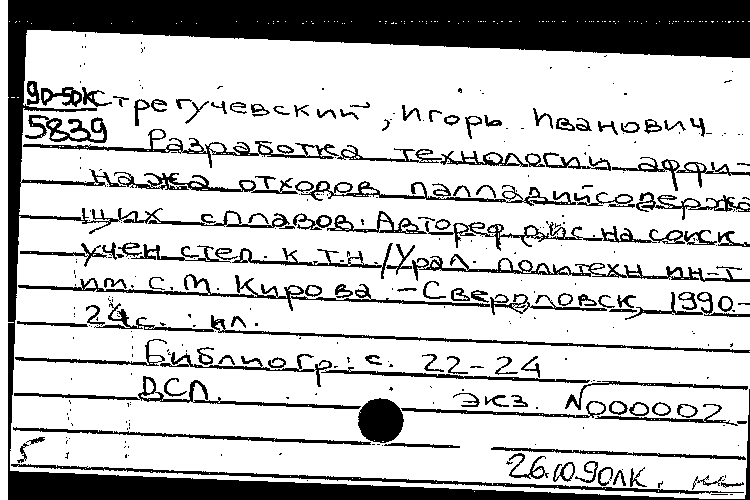 9D-5DK Стрегучевский, Игорь Иванович
5839 Разработка технологии аффи-
нажа отходов палладийсодержа
щих сплавов: Автореф дис. на соиск.
учен степ. к.т.н./Урал. политехн ин-т
им. С.М. Кирова. - Свердловск, 1990.-
24с. : ил.
Библиогр: с. 22-24
ДСП. экз. N000002
5 26.10.90ЛК.